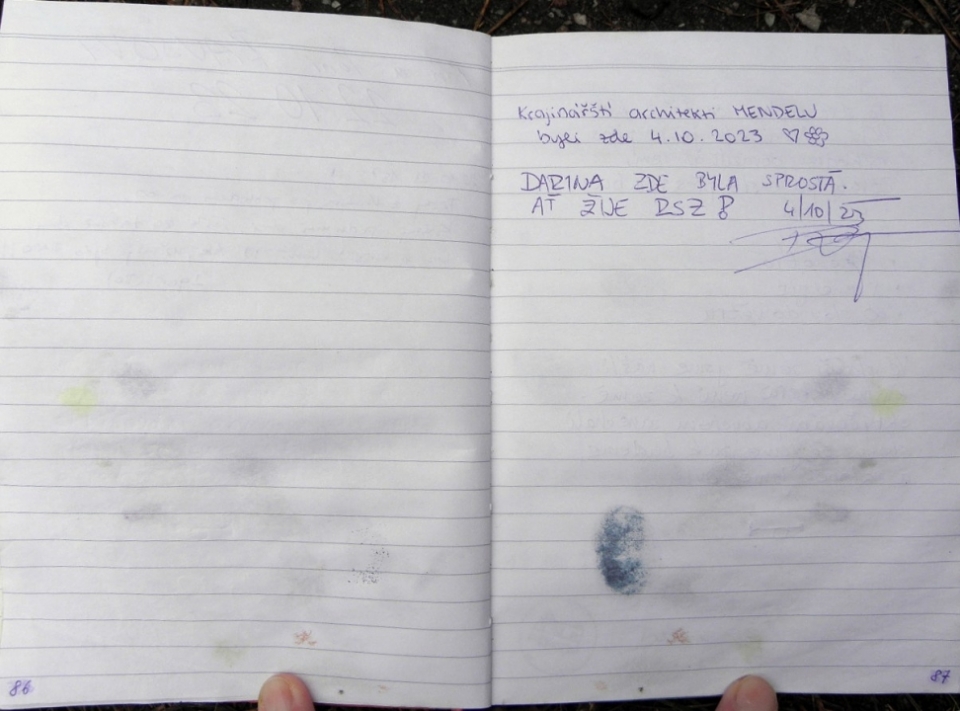 Krajinářští architekti MENDELU
byli zde 4.10.2023 ♡
DARINA ZDE BYLA SPROSTÁ.
AŤ ŽIJE RSZ 4/10/23
86
87